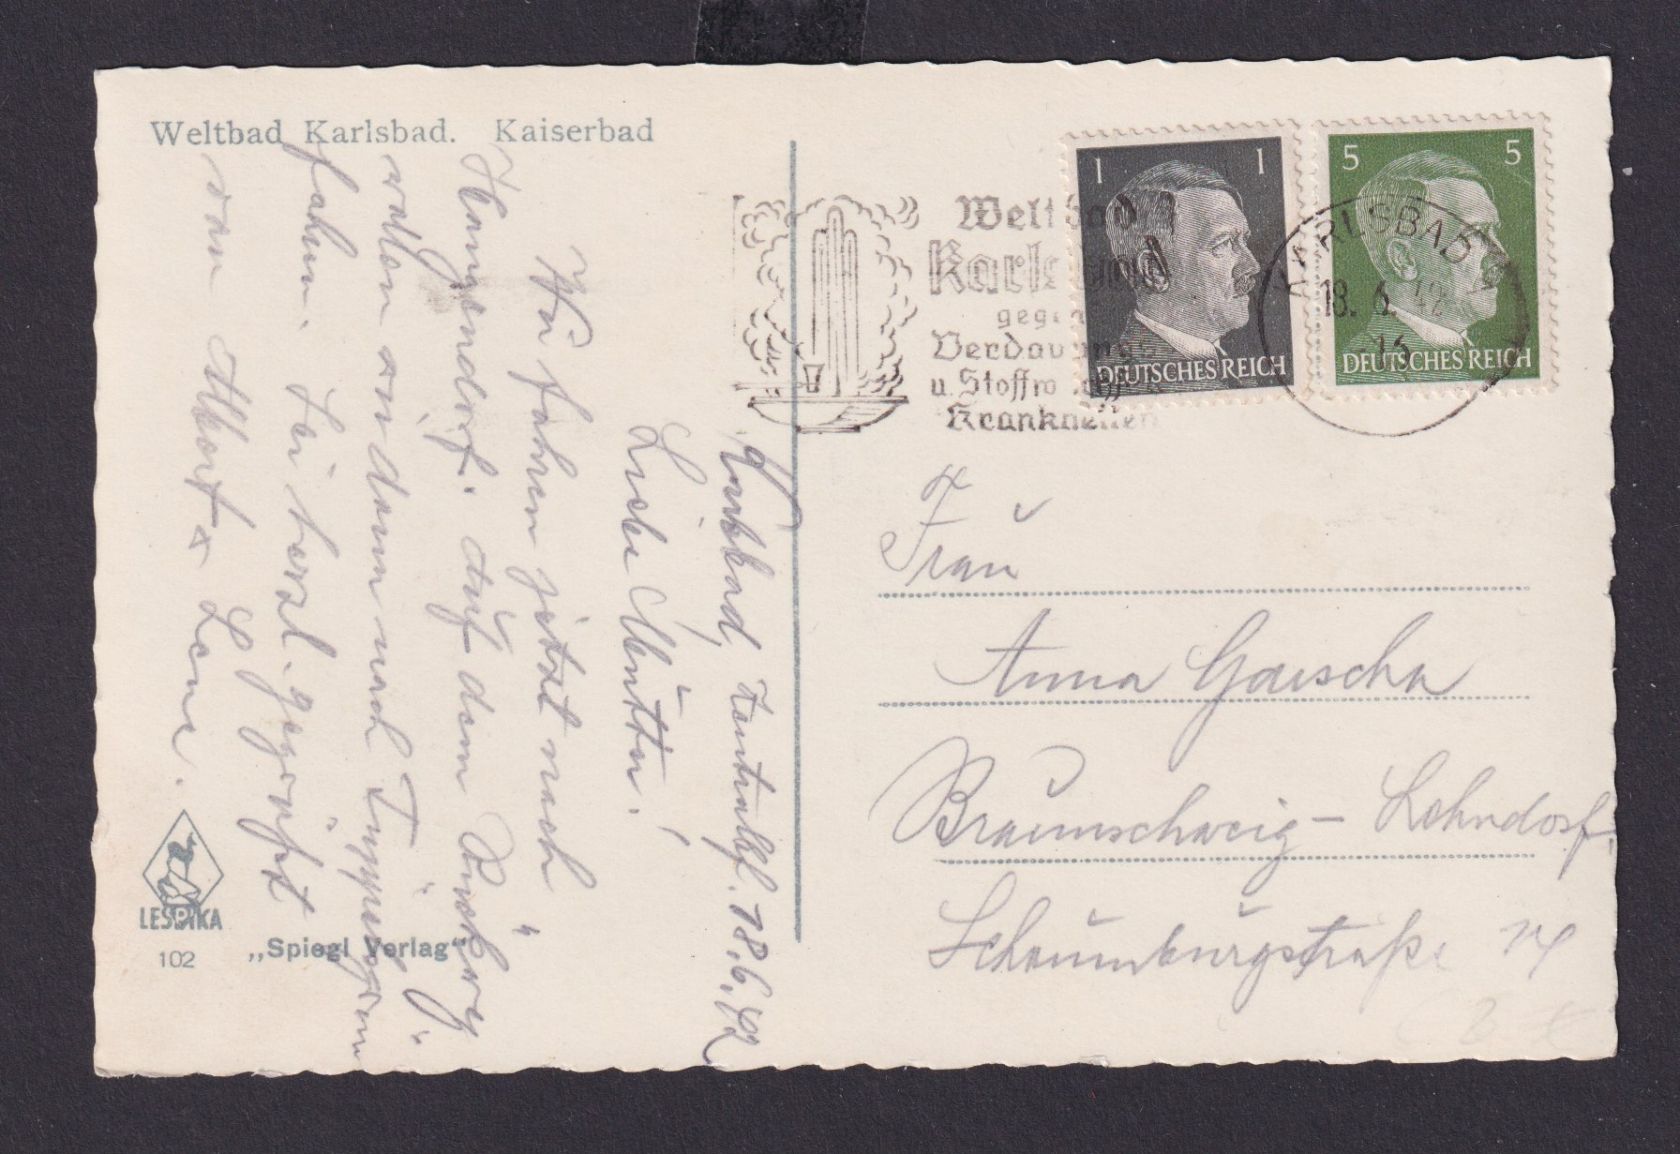 Weltbad Karlsbad. Kaiserbad
Karlsbad, 18.6.42
Liebe Mutter!
Wir fahren jetzt nach
Hangendorf. Auf dem Rückweg
wollen wir dann nach
fahren. Sei herzl. gegrüßt
von Albert & Lene.
LESPIKA
102
„Spiegl Verlag“
Weltbad
Karlsbad
gegen
Verdauungs
u. Stoffw
Krankheiten
1 1
DEUTSCHES REICH
5 5
DEUTSCHES REICH
KARLSBAD
18. 6. 42
Frau
Anna
Braunschweig - Lehndorf
Schaumburgstraße 14